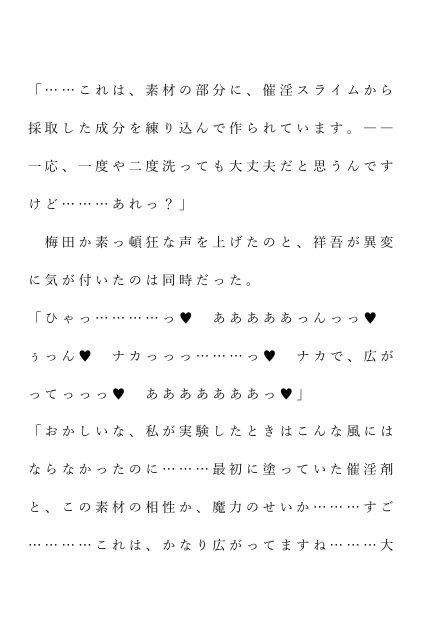 「……これは、素材の部分に、催淫スライムから
採取した成分を練り込んで作られています。――
一応、一度や二度洗っても大丈夫だと思うんです
けど………あれっ？」
　梅田か素っ頓狂な声を上げたのと、祥吾が異変
に気が付いたのは同時だった。
「ひゃっ…………っ♥　あああああっんっっ♥
ぅっん♥　ナカっっっ………っ♥　ナカで、広が
ってっっっ♥　あああああああっ♥」
「おかしいな、私が実験したときはこんな風には
ならなかったのに………最初に塗っていた催淫剤
と、この素材の相性か、魔力のせいか………すご
…………これは、かなり広がってますね………大